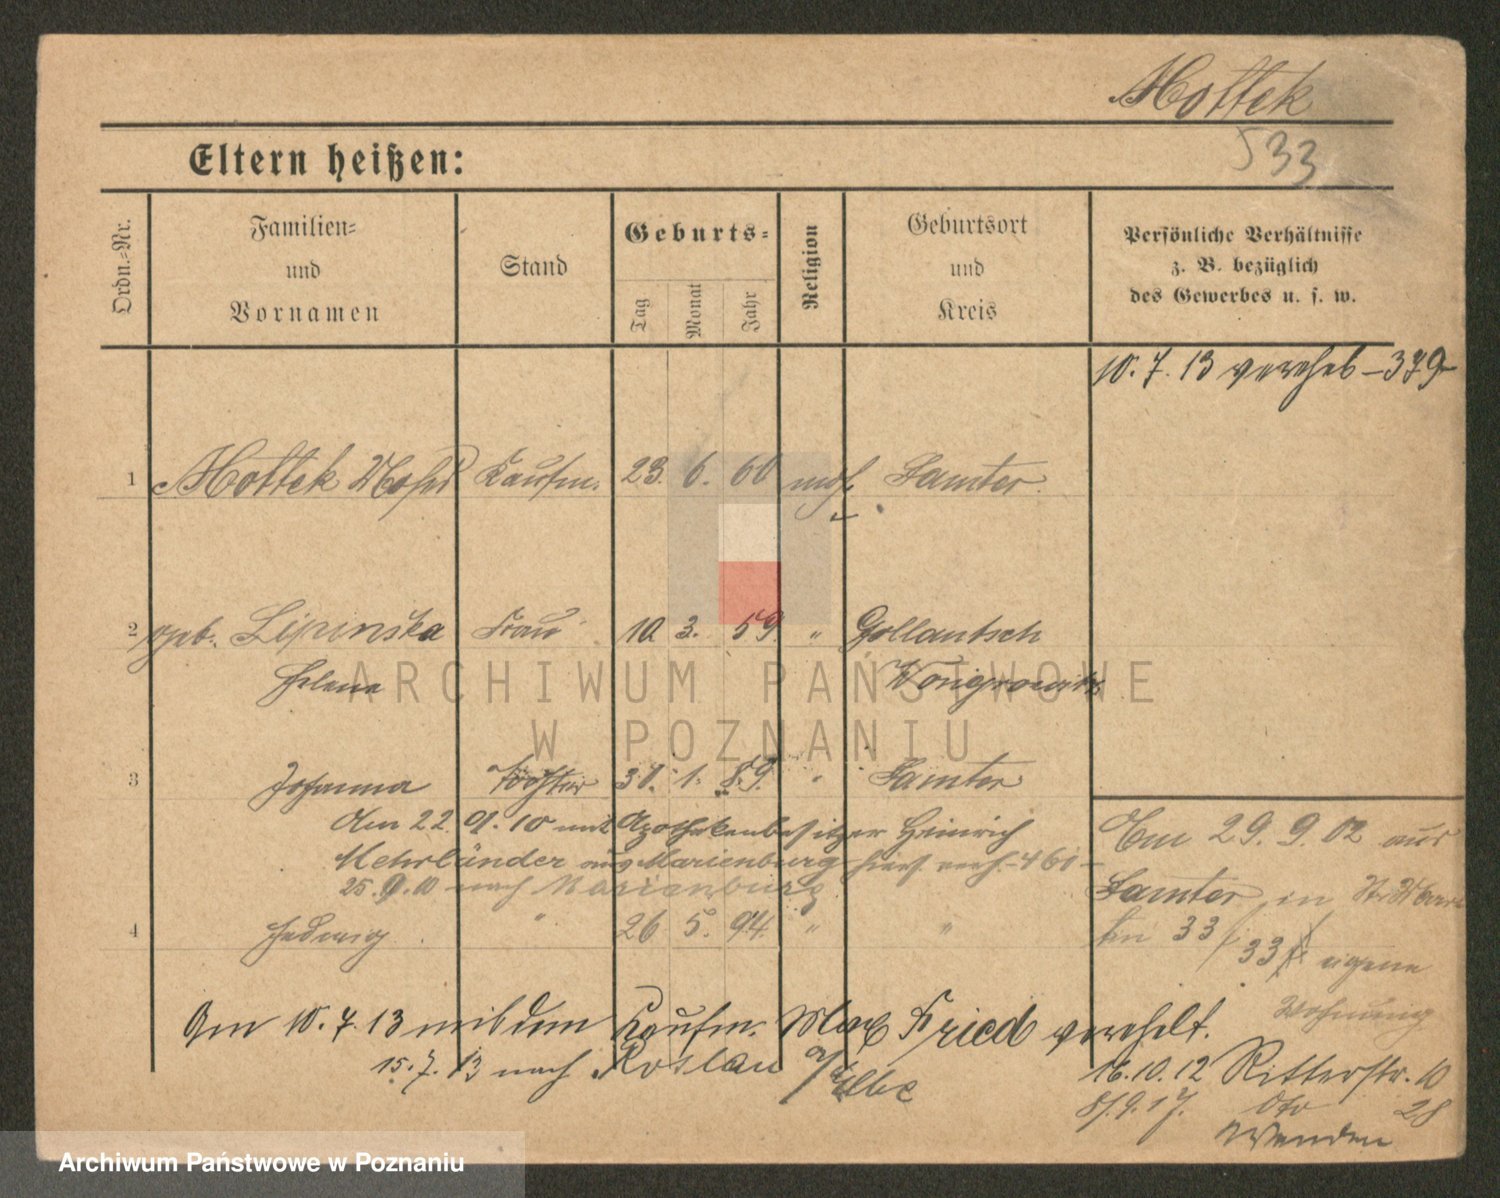 Mottek
533
Eltern heißen:
Ordn.-Nr.
Familien-
und
Vornamen
Stand
Geburts-
Tag
Monat
Jahr
Religion
Geburtsort
und
Kreis
Persönliche Verhältnisse
z. B. bezüglich
des Gewerbes u. s. w.
10. 7. 13 verehel. - 379 -
1 Mottek Kaufm. 23. 6. 60 mos. Samter
2 geb. Lipinska Frau 10. 3. 59. " Gollantsch
Helene Wongrowitz
3 Johanna Tochter 31. 1. 89. " Samter
Am 22. 9. 10 mit Apothekenbesitzer Heinrich
Mehrländer aus Marienburg hier verh. - 461 -
25. 9. 10 nach Marienburg
4 Hedwig " 26 5. 94. " "
Am 29. 9. 02 aus
Samter in St. Mar
tin 33 /
33 eigene
Wohnung
Am 10. 7. 13 mit dem Kaufm. Max Fried verehelt.
15. 7. 13 nach Roslau a/Elbe
16. 10. 12 Ritterstr. 10
8/. 9. 17. 28
ARCHIWUM PAŃSTWOWE
W POZNANIU
Archiwum Państwowe w Poznaniu